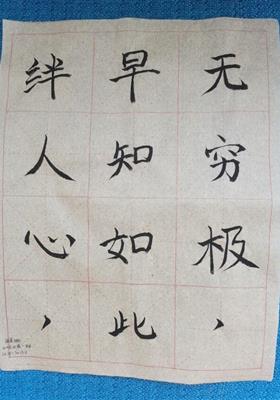 无穷极，
早知如此
绊人心，